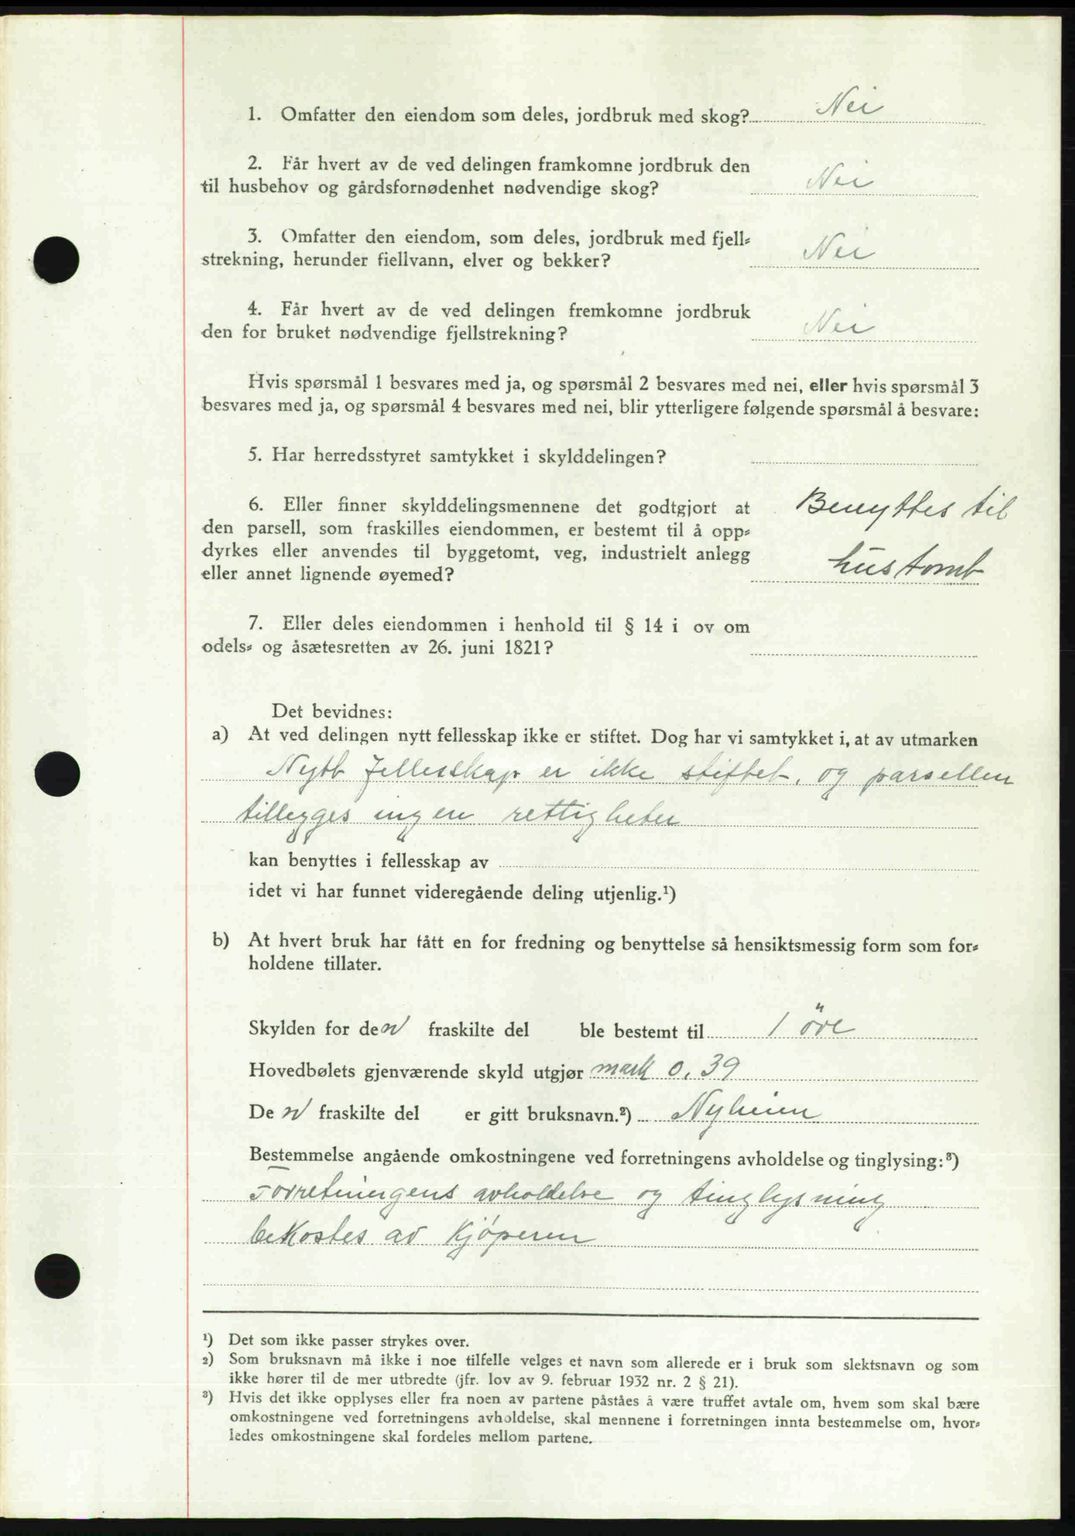 1. Omfatter den eiendom som deles, jordbruk med skog? Nei
2. Får hvert av de ved delingen framkomne jordbruk den
til husbehov og gårdsfornødenhet nødvendige skog? Nei
3. Omfatter den eiendom, som deles, jordbruk med fjell=
strekning, herunder fiellvann, elver og bekker? Nei
4. Får hvert av de ved delingen fremkomne jordbruk
den for bruket nødvendige fjellstrekning? Nei
Hvis spørsmål 1 besvares med ja, og spørsmål 2 besvares med nei, eller hvis spørsmål 3
besvares med ja, og spørsmål 4 besvares med nei, blir ytterligere følgende spørsmål å besvare:
5. Har herredsstyret samtykket i skylddelingen?
6. Eller finner skylddelingsmennene det godtgjort at Benyttes til
den parsell, som fraskilles eiendommen, er bestemt til å opp=
dyrkes eller anvendes til byggetomt, veg, industrielt anlegg hustomt
eller annet lignende øyemed?
7. Eller deles eiendommen i henhold til § 14 i ov om
odels= og åsætesretten av 26. juni 1821?
Det bevidnes:
a) At ved delingen nytt fellesskap ikke er stiftet. Dog har vi samtykket i, at av utmarken
Nytt fellesskap er ikke stiftet, og parsellen
tillegges ingen rettigheter
kan benyttes i fellesskap av
idet vi har funnet videregående deling utjenlig.¹)
b) At hvert bruk har fått en for fredning og benyttelse så hensiktsmessig form som for=
holdene tillater.
Skylden for den fraskilte del ble bestemt til 1 öre
Hovedbølets gjenværende skyld utgjør mark 0,39
De n fraskilte del er gitt bruksnavn.²) Nyheien
Bestemmelse angående omkostningene ved forretningens avholdelse og tinglysing:³)
Forretningens avholdelse og tinglysning
bekostes av kjøperen
¹) Det som ikke passer strykes over.
²) Som bruksnavn må ikke i noe tilfelle velges et navn som allerede er i bruk som slektsnavn og som
ikke hører til de mer utbredte (jfr. lov av 9. februar 1932 nr. 2 § 21).
³) Hvis det ikke opplyses eller fra noen av partene påståes å være truffet avtale om, hvem som skal bære
omkostningene ved forretningens avholdelse, skal mennene i forretningen innta bestemmelse om, hvor=
ledes omkostningene skal fordeles mellom partene.